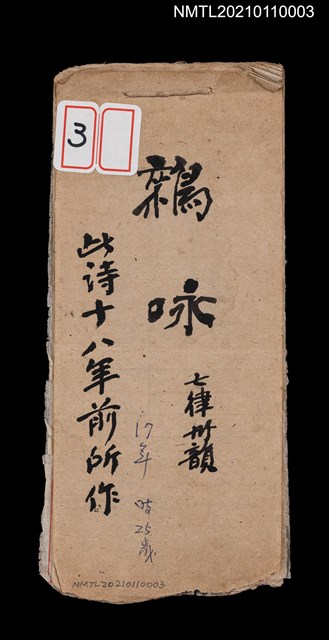 NMTL20210110003
3
雜咏
七律卅韻
17年 時25歲
此诗十八年前所作
NMTL20210110003